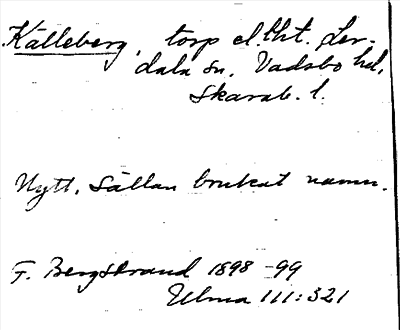 Källeberg, torp el. lht. Ler-
dala sn, Vadsbo hd,
Skarab. l.
Nytt, Sällan brukat namn.
F. Bergstrand 1898-99
Ulma 111:321